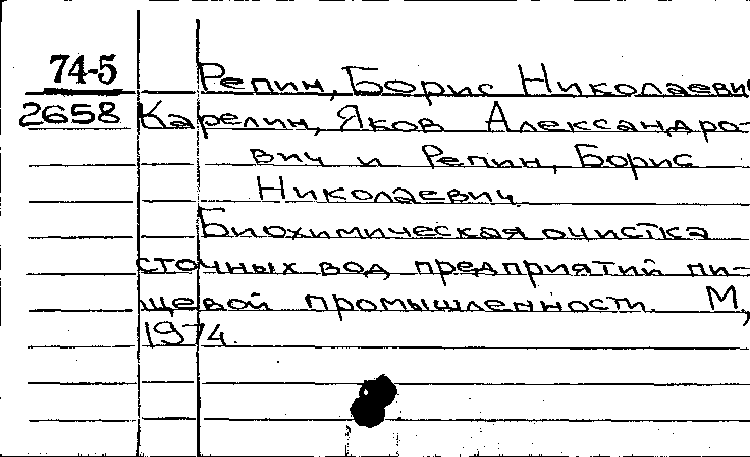 74-5 Репин, Борис Николаеви
2658 Карелин, Яков Александро-
вич и Репин, Борис
Николаевич
Биохимическая очистка
сточных вод предприятий пи-
щевой промышленности. М,
1974.